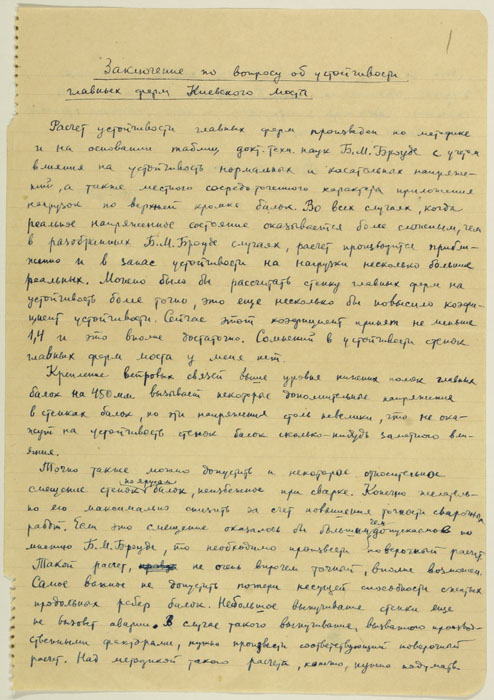 1
Заключение по вопросу об устойчивости
главных ферм Киевского моста
Расчет устойчивости главных ферм произведен по методике
и на основании таблиц докт. техн. наук Б.М. Броуде с учетом
влияния на устойчивость нормальных и касательных напряже-
ний, а также местного сосредоточенного характера приложения
нагрузок по верхней кромке балок. Во всех случаях, когда
реальное напряженное состояние оказывается более сложным, чем
в разобранных Б.М. Броуде случаях, расчет производится прибли-
женно и в запас устойчивости на нагрузки несколько больше
реальных. Можно было бы рассчитать стенку главных ферм на
устойчивость более точно, это еще несколько бы повысило коэфи-
циент устойчивости. Сейчас этот коэфициент принят не меньше
1,4 и это вполне достаточно. Сомнений в устойчивости стенок
главных ферм моста у меня нет.
Крепление ветровых связей выше уровня нижних полок главных
балок на 450 мм. вызывает некоторое дополнительное напряжения
в стенках балок, но эти напряжения столь невелики, что не ока-
жут на устойчивость стенок балок сколько-нибудь заметного вли-
яния.
Точно также можно допустить и некоторое относительное
смещение стенок по ярусам балок, неизбежное при сварке. Конечно желатель-
но его максимально снизить за счет повышения точности сварочных
работ. Если это смещение оказалось бы большим чем допускаемое по
мнению Б.М. Броуде, то необходимо произвести поверочный расчет.
Такой расчет, не очень впрочем точный, вполне возможен.
Самое важное не допустить потери несущей способности сжатых
продольных ребер балок. Небольшое выпучивание стенки еще
не вызовет аварии. В случае такого выпучивания, вызванного производ-
ственными факторами, нужно произвести соответствующий поверочный
расчет. Над методикой такого расчета, конечно, нужно подумать